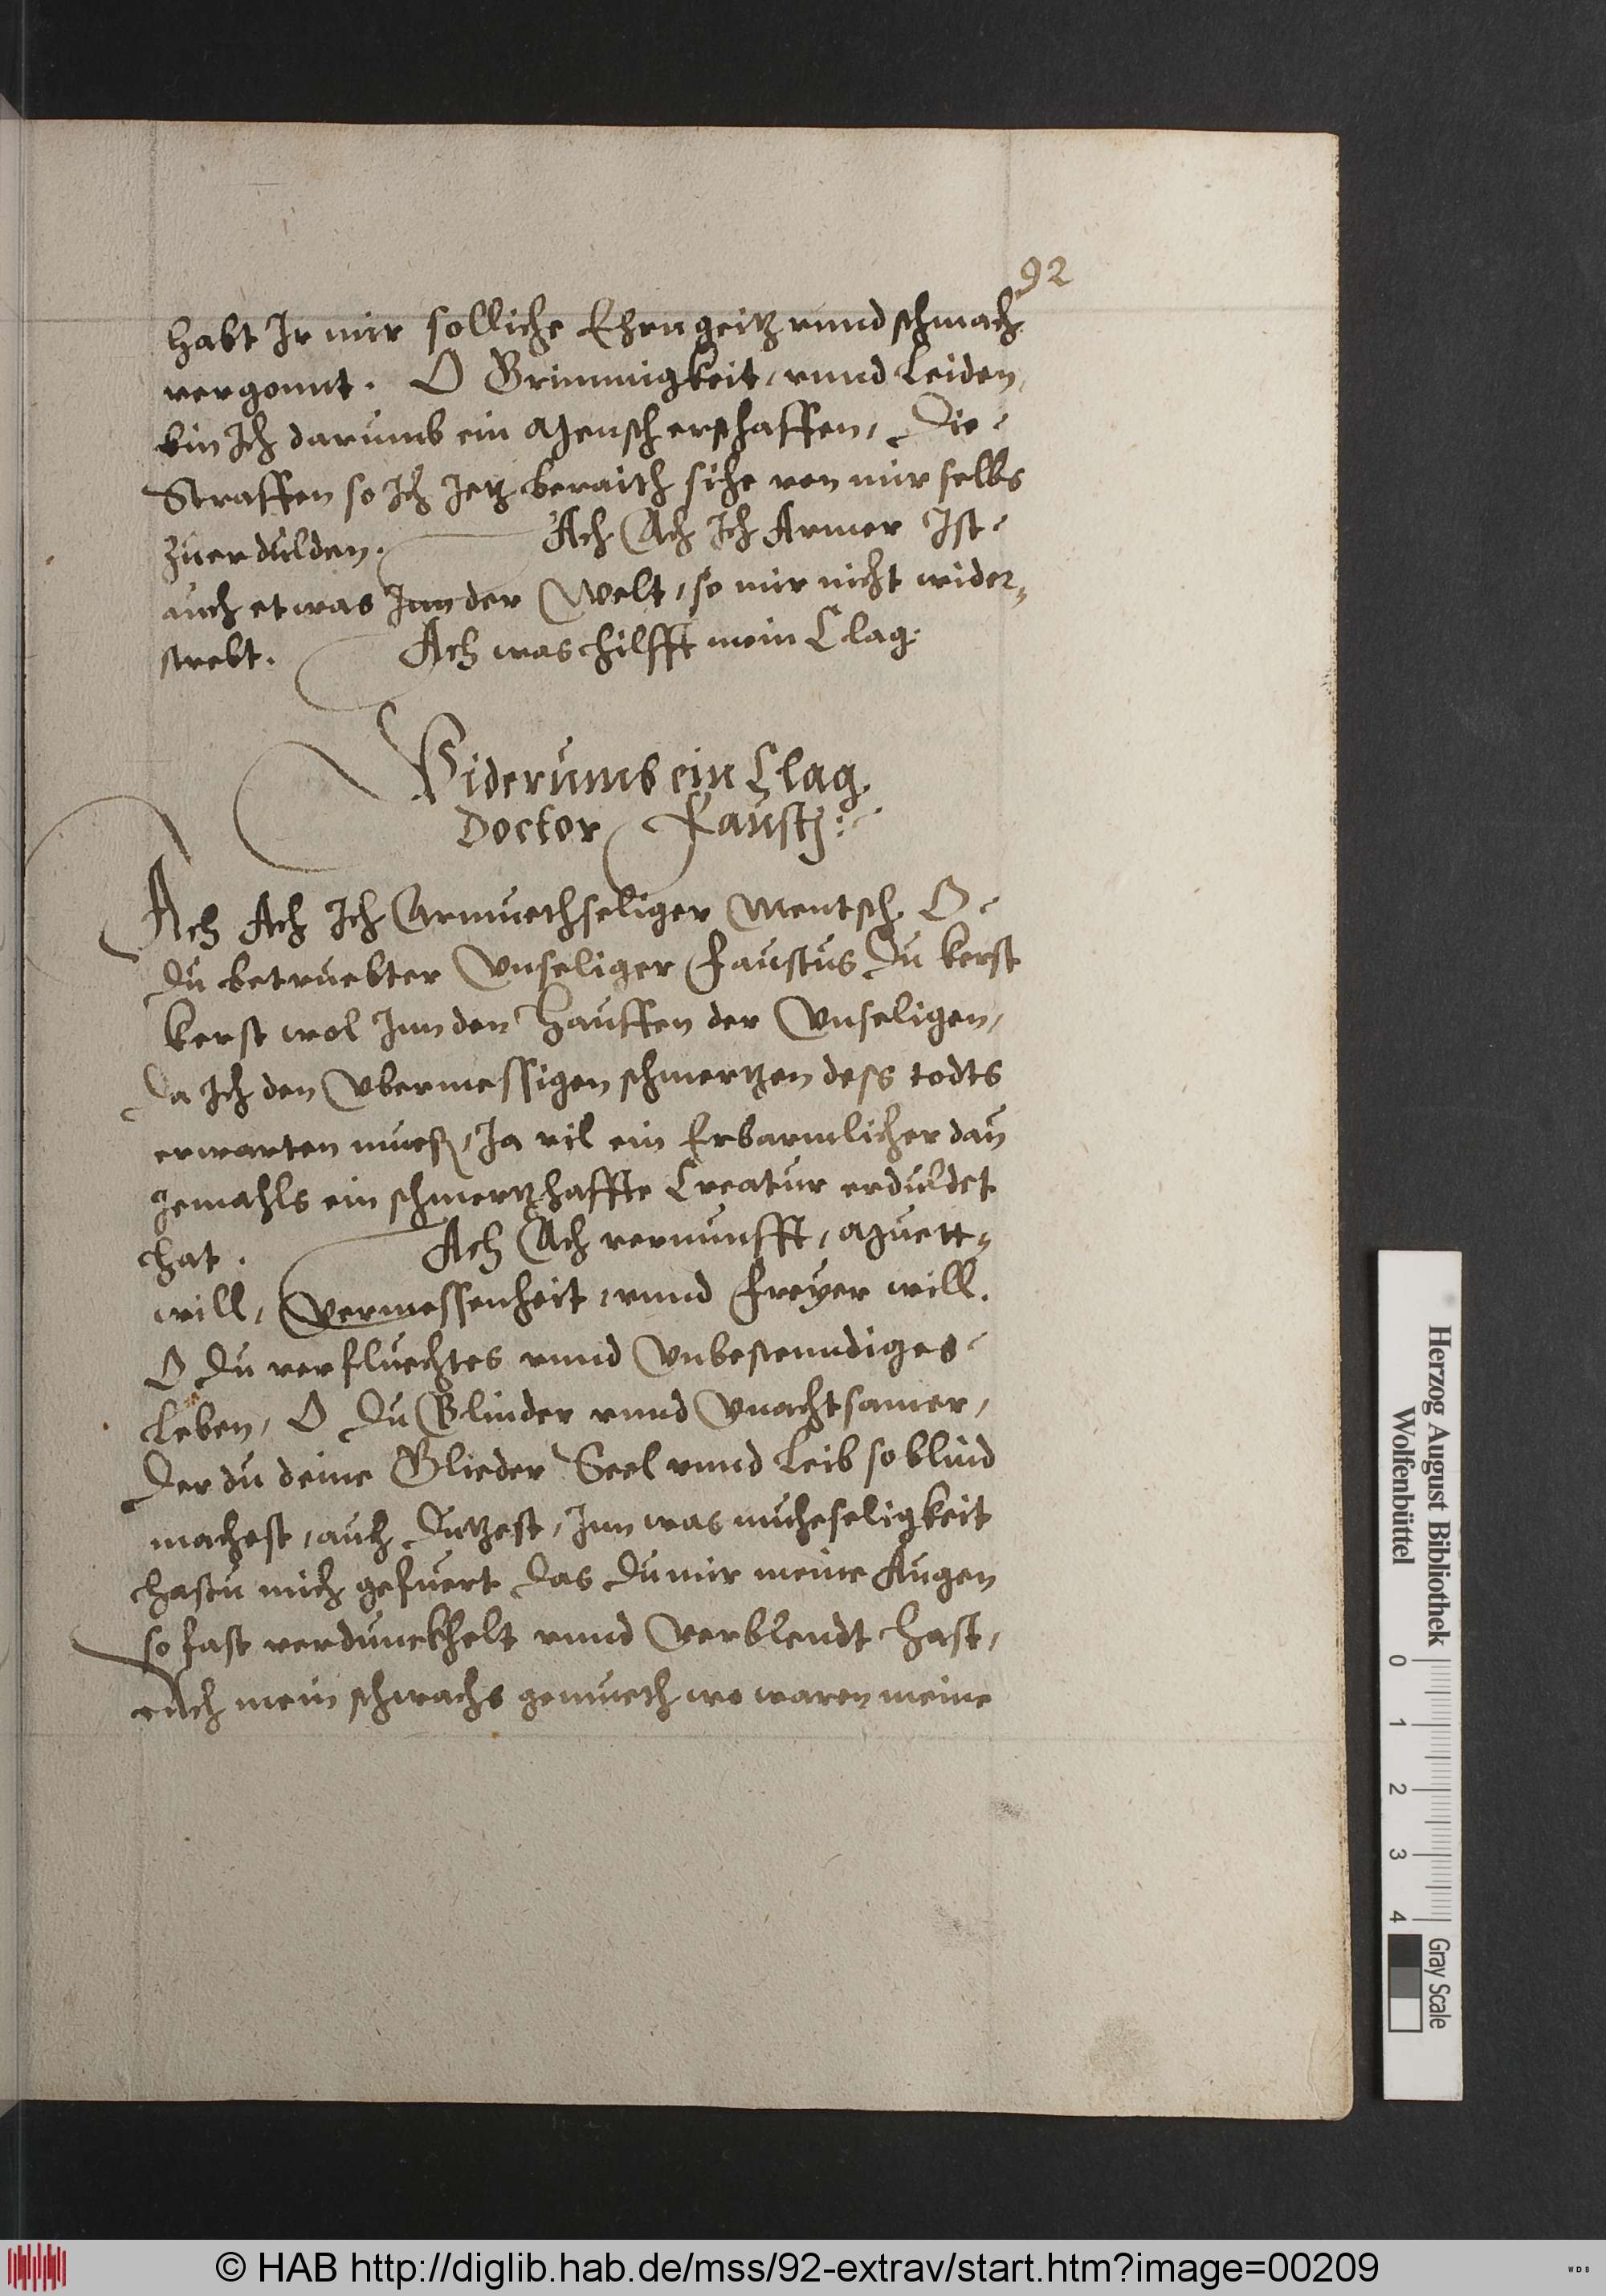 92
habt Ir mir solliche Ehrngeitz vnnd schmach
vergonnt. O Grimmigkeit, vnnd Leiden,
bin Ich darumb ein Mensch erschaffen, Die
Straffen so Ich Jetz beraith sihe von mir selbs
zuerdulden. Ach Ach Ich Armer Ist
auch etwas Inn der Welt, so mir nicht wider¬
strebt. Ach was hilfft mein Clag.
Widerumb ein Clag.
Doctor Faustj:
Ach Ach Ich Armuethseliger Mentsch. O
Du betruebter Vnseliger Faustus Du kerst
kerst wol Inn den Hauffen der Vnseligen,
Da Ich den Vbermessigen schmertzen dess todts
erwarten mueß, Ja vil ein Erbarmlicher dan
Jemahls ein schmertzhaffte Creatur erduldet
hat. Ach Ach vernunfft, Muett¬
will, Vermessenheit, vnnd Freyer will.
O Du verfluechtes vnnd Vnbestenndiges
Leben, O Du Blinder vnnd Vnachtsamer,
Der du deine Glieder Seel vnnd Leib so blind
machest, auch Dutzest, Inn was muheseligkeit
hastu mich gefuert Das Du mir meine Augen
so fast verdunckhelt vnnd Verblendt hast,
Ach mein schwachs gemueth wo waren meine
Herzog August Bibliothek
Wolfenbüttel
0 1 2 3 4
Gray Scale
© HAB http://diglib.hab.de/mss/92-extrav/start.htm?image=00209
WDB